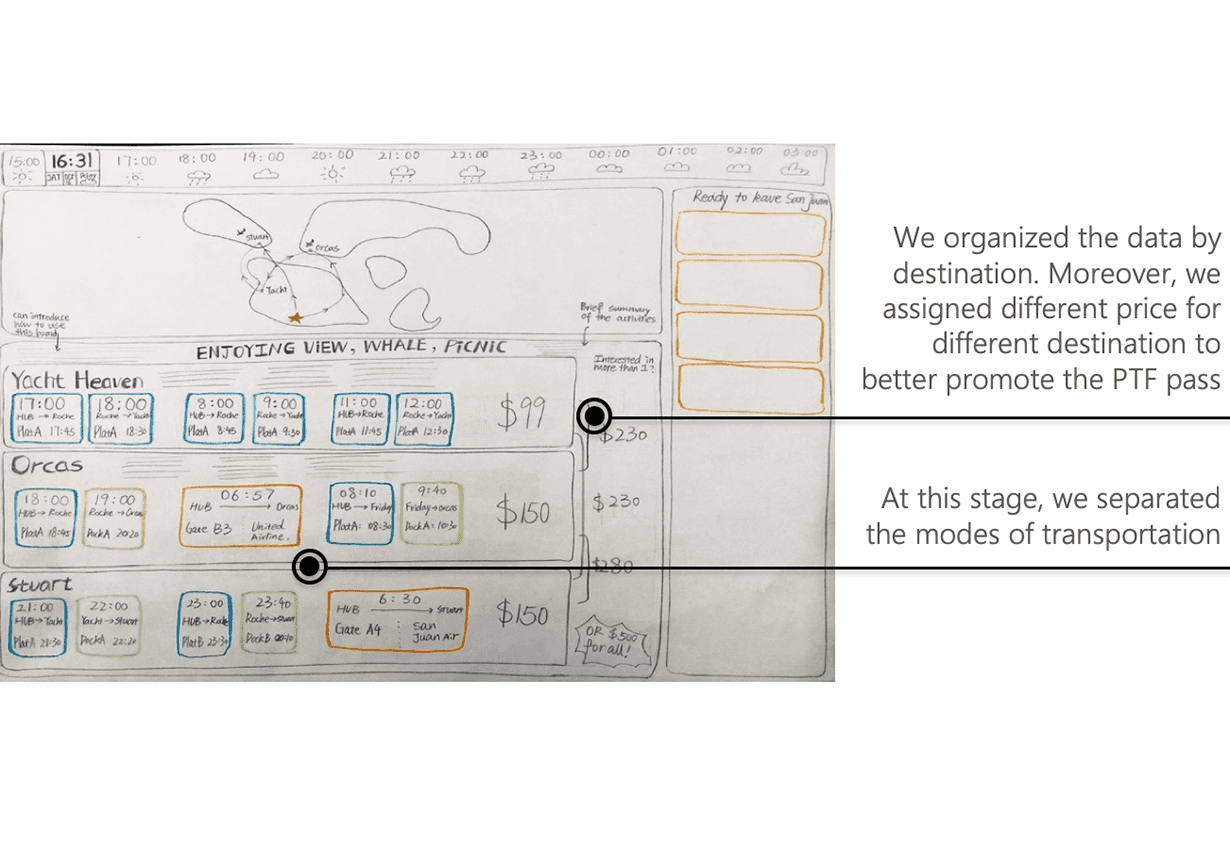 15:00 16:31 17:00 18:00 19:00 20:00 21:00 22:00 23:00 00:00 01:00 02:00 03:00
SAT
Ready to leave San Juan
Stuart
Orcas
Yacht
can introduce
how to use
this board
Brief summary
of the activities
ENJOYING VIEW, WHALE, PICNIC
Interested in
more than 1?
Yacht Heaven
17:00
HUB → Roche
PlatA 17:45
18:00
Roche → Yacht
PlatA 18:30
8:00
HUB → Roche
PlatA 8:45
9:00
Roche → Yacht
PlatA 9:30
11:00
HUB → Roche
PlatA 11:45
12:00
Roche → Yacht
PlatA 12:30
$99
$230
Orcas
18:00
HUB → Roche
PlatA 18:45
19:00
Roche → Orcas
DockA 20:20
06:57
HUB → Orcas
Gate B3 United
Airline.
08:10
HUB → Friday
PlatA: 08:30
9:40
Friday → orcas
DockA: 10:30
$150
$230
$280
Stuart
21:00
HUB → Yacht
PlatA 21:30
22:00
Yacht → Stuart
DockA 22:20
23:00
HUB → Roche
PlatB 23:30
23:40
Roche → Stuart
DockB
6:30
HUB → Stuart
Gate A4 San
Juan Air
$150
OR $500
for all!
We organized the data by
destination. Moreover, we
assigned different price for
different destination to
better promote the PTF pass
At this stage, we separated
the modes of transportation